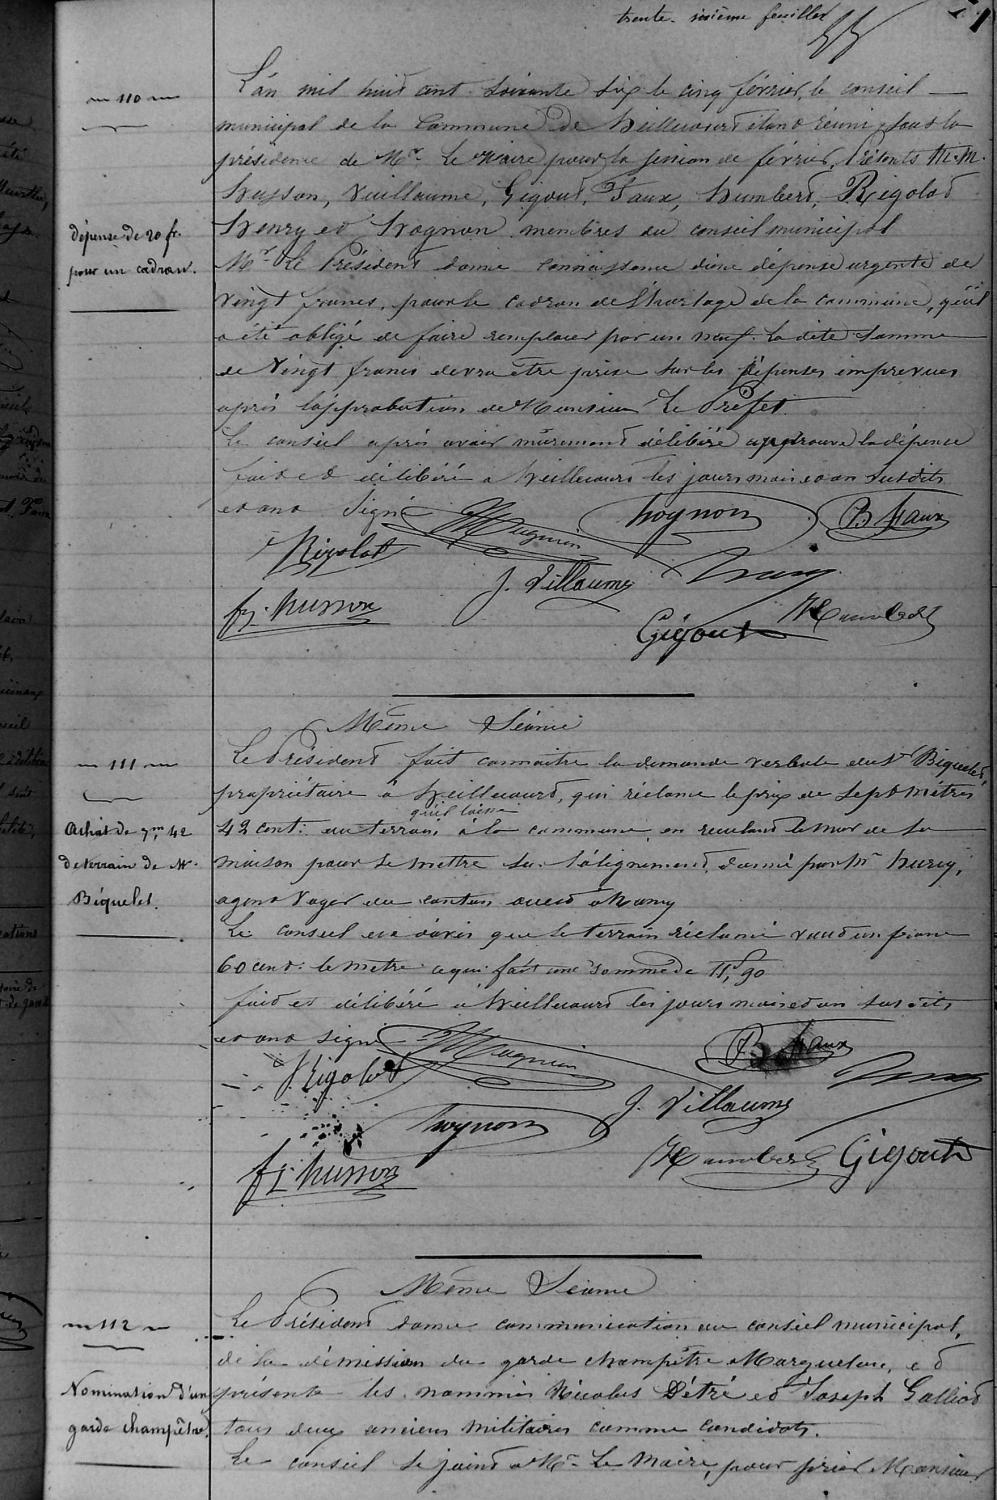 trente-sixième feuillet
110
L'an mil huit cent soixante six le cinq février, le conseil
municipal de la Commune de Heillecourt étant réuni sous la
présidence de Mr. Le Maire pour la session de février, Présents M.M.
Husson, Vuillaume, Gigout, Faux, Humbert, Rigolot
Henry et Hognon membres du conseil municipal
dépense de 20 fr.
pour un cadran.
Mr. Le Président donne connaissance d'une dépense urgente de
Vingt francs, pour le cadran de l'horloge de la commune, qu'il
a été obligé de faire remplacer par un neuf. La dite somme
de Vingt francs devra être prise sur les dépenses imprévues
après l'approbation de Monsieur Le Préfet.
Le conseil après avoir mûrement délibéré approuve la dépense
fait et délibéré a heillecourt les jours mois et an susdits
et ont signé
Hognon B. Faux
Rigolot J. Villaume
fz. husson Gigout Humbert
Même Séance
111
Achat de 7m 42
de terrain de Mr
Biquelet.
Le Président fait connaitre la demande verbale du Sr Biquelet,
propriétaire à heillecourt, qui réclame le prix de sept mètres
qu'il laisse
42 cent. du terrain à la commune en reculant le mur de sa
maison pour se mettre sur l'alignement donné par Mr
agent Voyer du canton ouest à Nancy
Le conseil est d'avis que le terrain réclamé vaut un franc
60 cent. le mètre ce qui fait une somme de 11f,90
fait et délibéré a heillecourt les jours mois et an susdits
et ont signé
B. Faux
Rigolot J. Villaume
hognon
fz. husson Humbert Gigout
Même Séance
112
Nomination d'un
garde champêtre.
Le Président donne communication au conseil municipal,
de la démission du garde champêtre et
présente les nommés Nicolas Détré et Joseph Galliot
tous deux anciens militaires comme candidats.
Le conseil se joint a Mr Le Maire, pour prier Monsieur